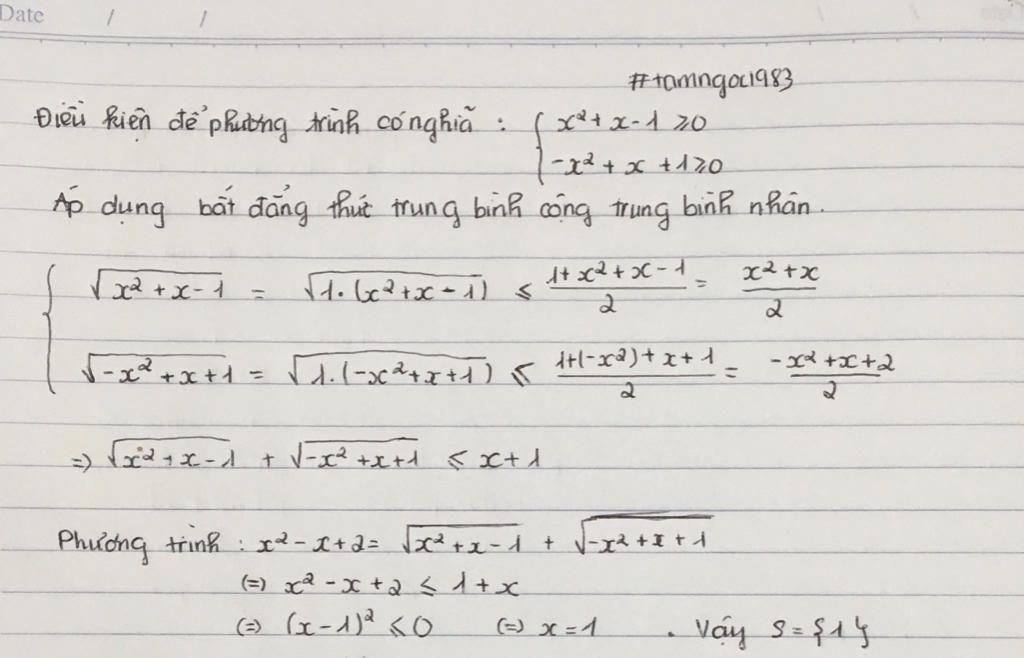 Date / /
#tamngoc1983
Điều kiện để phương trình có nghĩa : { x² + x - 1 ≥ 0
-x² + x + 1 ≥ 0
Áp dụng bất đẳng thức trung bình cộng trung bình nhân.
{ √(x² + x - 1) = √(1.(x² + x - 1)) ≤ (1 + x² + x - 1)/2 = (x² + x)/2
√(-x² + x + 1) = √(1.(-x² + x + 1)) ≤ (1 + (-x²) + x + 1)/2 = (-x² + x + 2)/2
=> √(x² + x - 1) + √(-x² + x + 1) ≤ x + 1
Phương trình : x² - x + 2 = √(x² + x - 1) + √(-x² + x + 1)
(=) x² - x + 2 ≤ 1 + x
(=) (x - 1)² ≤ 0 (=) x = 1 . Vậy S = {1}